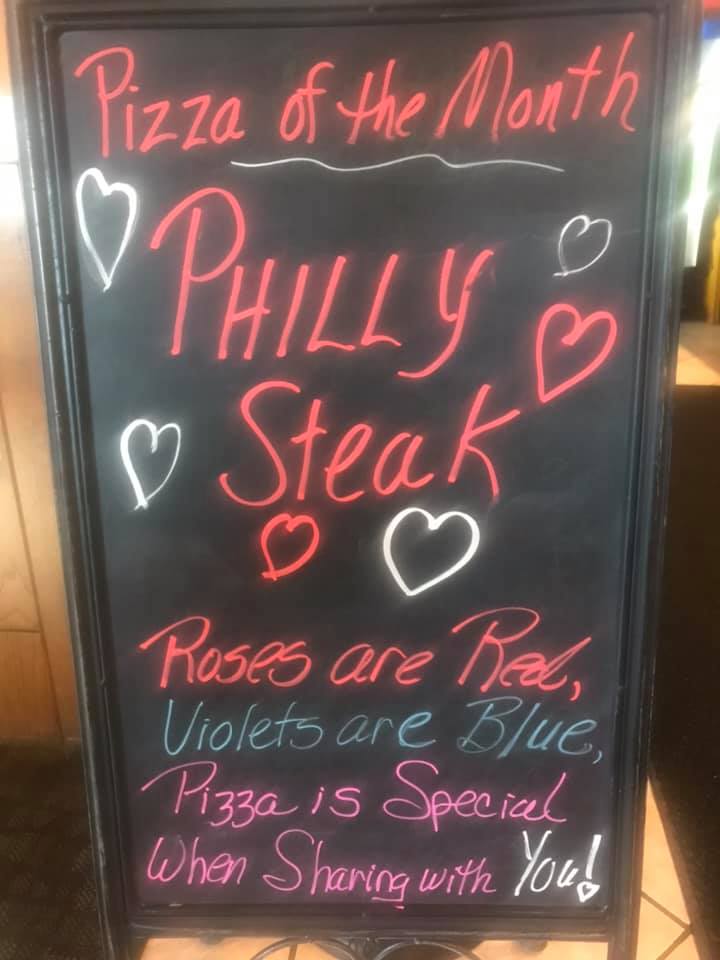 Pizza of the Month
PHILLY
Steak
Roses are Red,
Violets are Blue,
Pizza is Special
When Sharing with You!